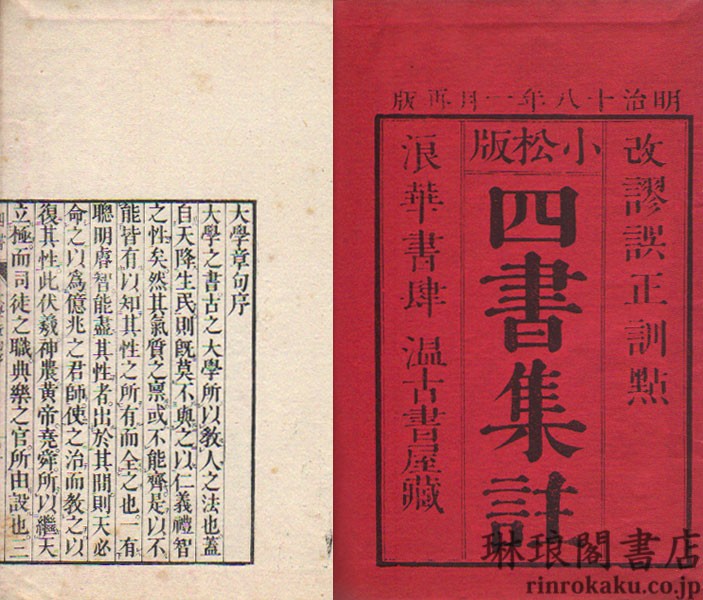 明治十八年一月再版
改謬誤正訓點
小松版
四書集註
浪華書肆 温古書屋藏
大學章句序
大學之書古之大學所以敎人之法也蓋
自天降生民則旣莫不與之以仁義禮智
之性矣然其氣質之稟或不能齊是以不
能皆有以知其性之所有而全之也一有
聰明睿智能盡其性者出於其間則天必
命之以爲億兆之君師使之治而敎之以
復其性此伏羲神農黃帝堯舜所以繼天
立極而司徒之職典樂之官所由設也三
琳琅閣書店
rinrokaku.co.jp